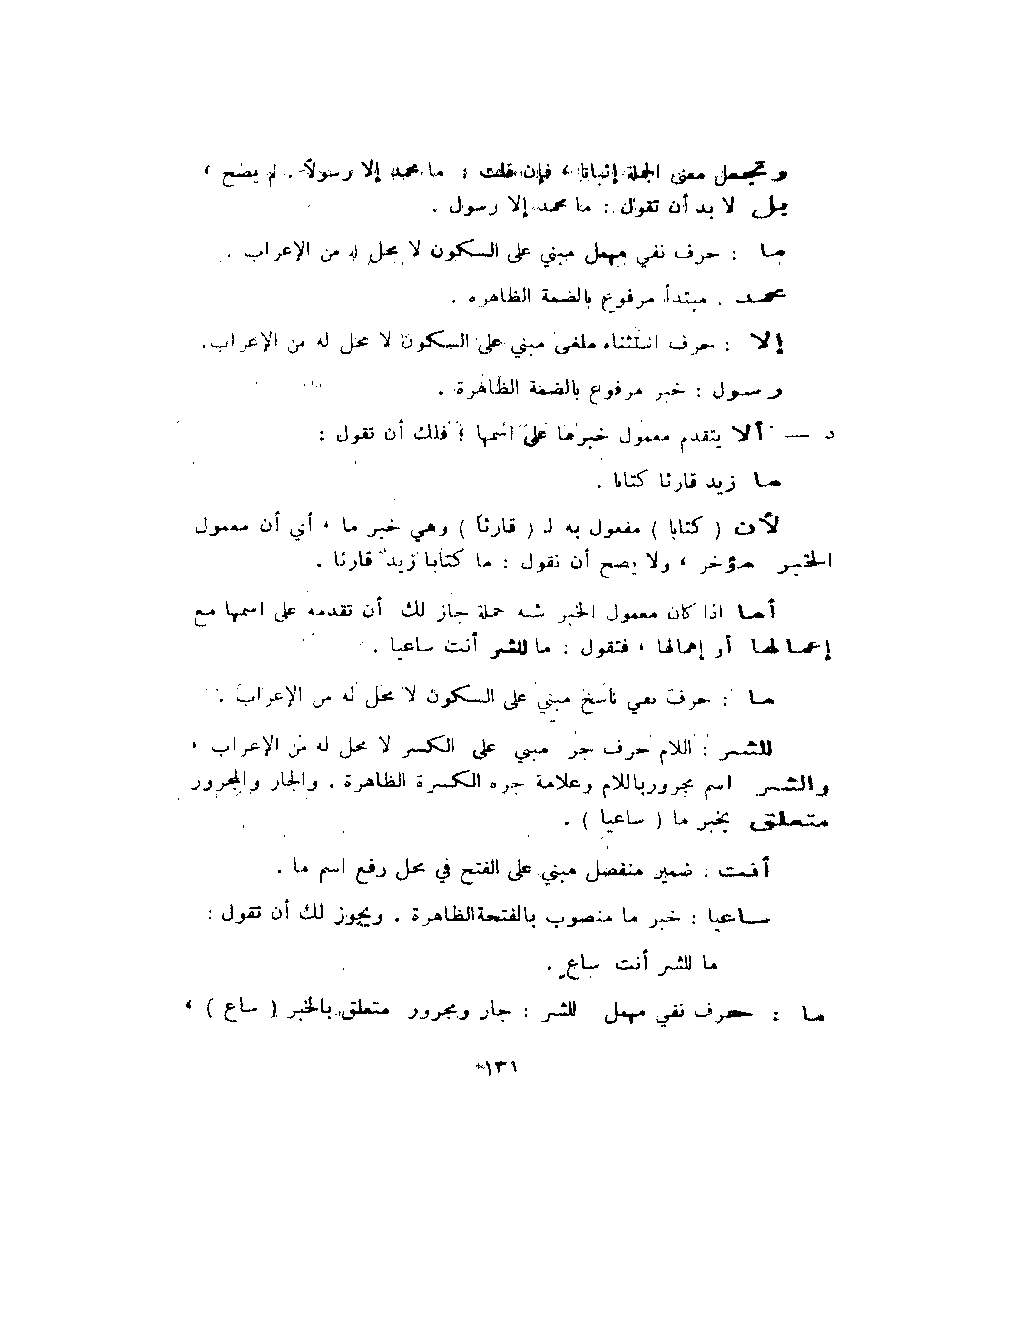 وتجعل معنى الجملة إثباتا ، فإن قلت : ما محمد إلا رسولاً . لم يصح ،
بل لا بد أن تقول : ما محمد إلا رسول .
ما : حرف نفي مهمل مبني على السكون لا محل له من الإعراب .
محمد . مبتدأ مرفوع بالضمة الظاهرة .
إلا : حرف استثناء ملغى مبني على السكون لا محل له من الإعراب .
رسول : خبر مرفوع بالضمة الظاهرة .
د — ألا يتقدم معمول خبرها على اسمها ؛ فلك أن تقول :
ما زيد قارئا كتابا .
لأن ( كتابا ) مفعول به لـ ( قارئاً ) وهي خبر ما ، أي أن معمول
الخبر مؤخر ، ولا يصح أن نقول : ما كتابا زيد قارئا .
أما اذا كان معمول الخبر شبه جملة جاز لك أن تقدمه على اسمها مع
إعمالها أو إهمالها ، فتقول : ما للشر أنت ساعيا .
ما : حرف نفي ناسخ مبني على السكون لا محل له من الإعراب .
للشر : اللام حرف جر مبني على الكسر لا محل له من الإعراب ،
والشر اسم مجرور باللام وعلامة جره الكسرة الظاهرة . والجار والمجرور
متعلق بخبر ما ( ساعيا ) .
أنت : ضمير منفصل مبني على الفتح في محل رفع اسم ما .
ساعيا : خبر ما منصوب بالفتحة الظاهرة . ويجوز لك أن تقول :
ما للشر أنت ساعٍ .
ما : حرف نفي مهمل للشر : جار ومجرور متعلق بالخبر ( ساع ) ،
١٣١